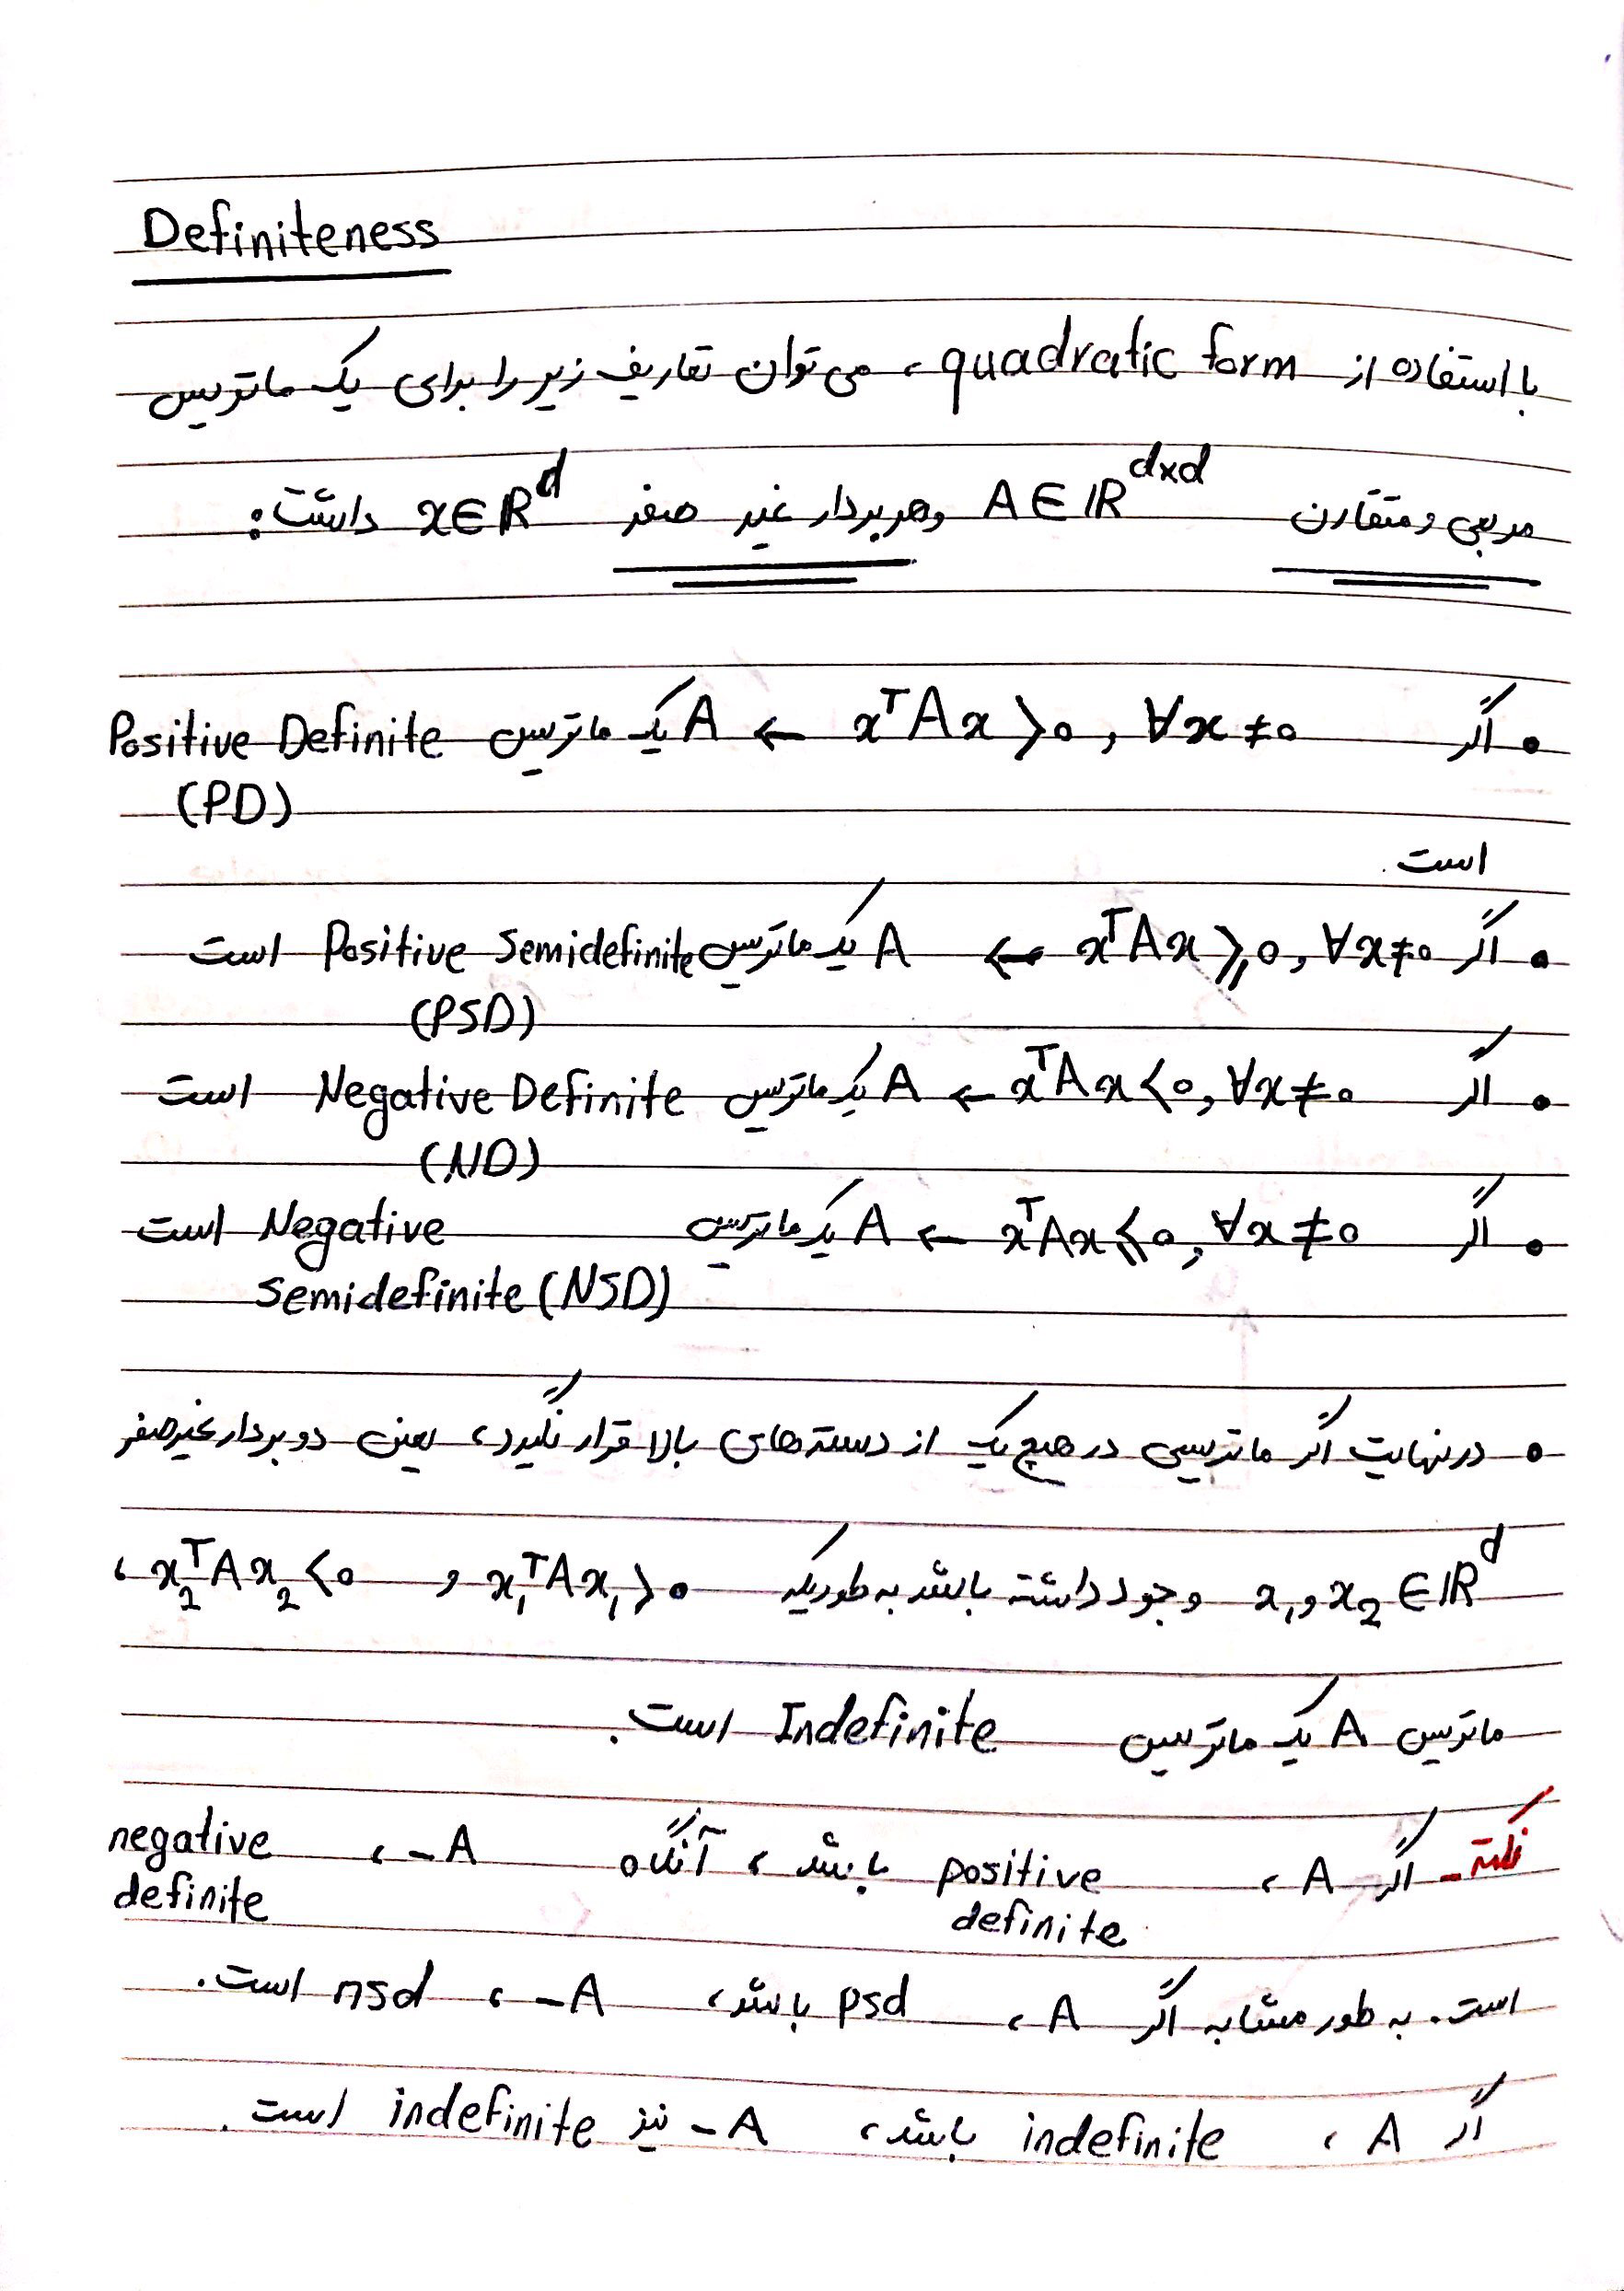 Definiteness
با استفاده از quadratic form ، می توان تعاریف زیر را برای یک ماتریس
مربعی و متقارن A ∈ ℝ^{d×d} و هر بردار غیر صفر x ∈ ℝ^d داشت:
• اگر x^T A x > 0 , ∀x ≠ 0 ← A یک ماتریس Positive Definite
(PD)
است.
• اگر x^T A x ≥ 0 , ∀x ≠ 0 ← A یک ماتریس Positive Semidefinite است
(PSD)
• اگر x^T A x < 0 , ∀x ≠ 0 ← A یک ماتریس Negative Definite است
(ND)
• اگر x^T A x ≤ 0 , ∀x ≠ 0 ← A یک ماتریس Negative است
Semidefinite (NSD)
• در نهایت اگر ماتریسی در هیچ یک از دسته های بالا قرار نگیرد، یعنی دو بردار غیر صفر
x₁ و x₂ ∈ ℝ^d وجود داشته باشد به طوریکه x₁^T A x₁ > 0 و x₂^T A x₂ < 0 ،
ماتریس A یک ماتریس Indefinite است.
نکته - اگر A ، positive باشد ، آنگاه -A ، negative
definite definite
است. به طور مشابه اگر A ، psd باشد، -A ، nsd است.
اگر A ، indefinite باشد، -A نیز indefinite است.